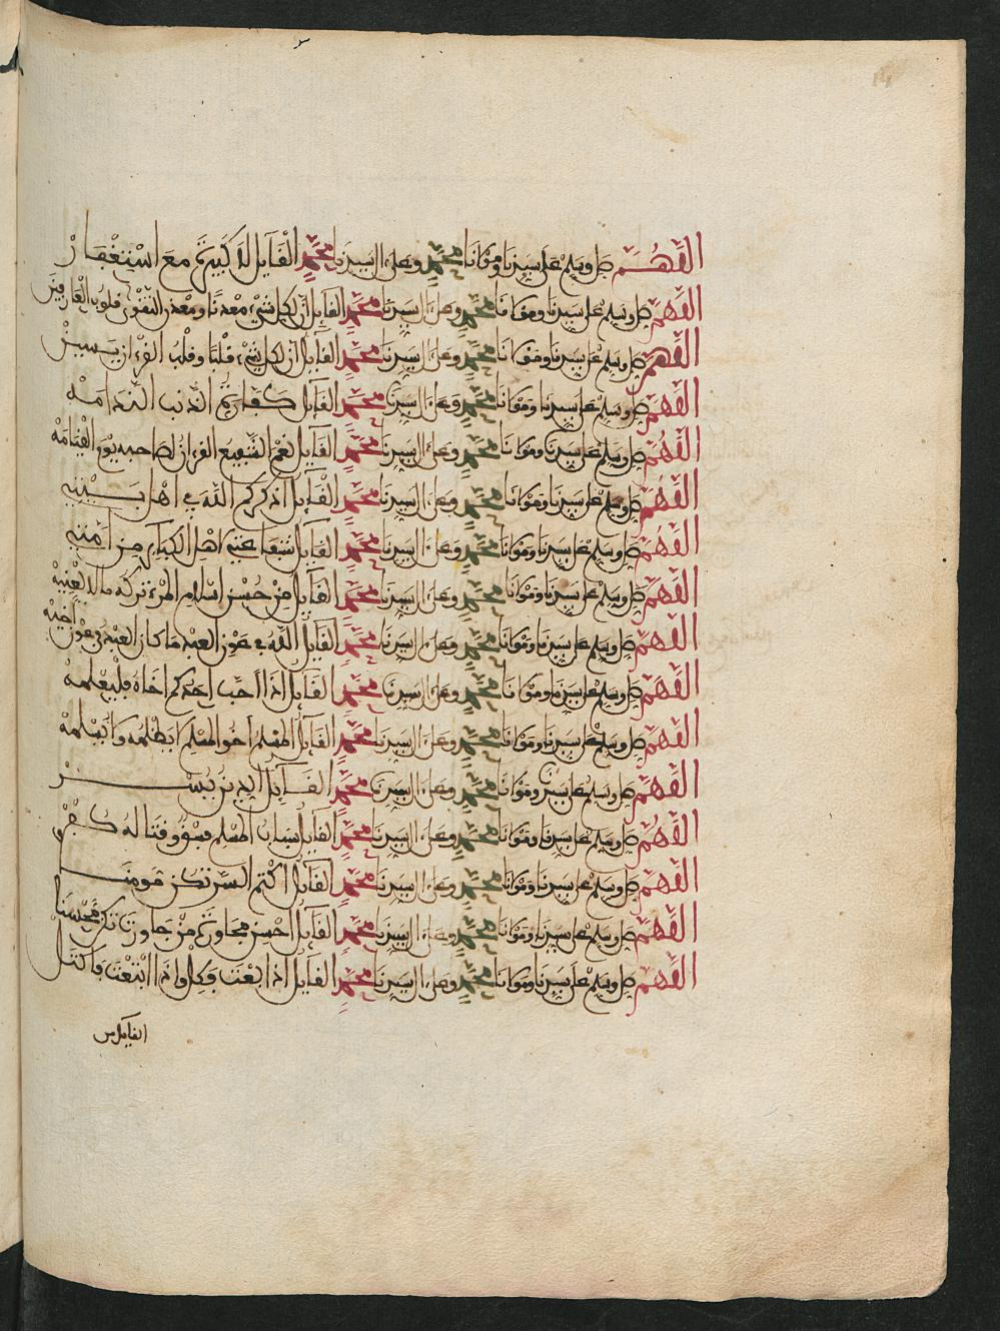 اللهم صل وسلم على سيدنا ومولانا محمد وعلى ءال سيدنا محمد القايل لا كبيرة مع استغفار
اللهم صل وسلم على سيدنا ومولانا محمد وعلى ءال سيدنا محمد القايل ان لكل شيء معدنا ومعدن التقوى قلوب العارفين
اللهم صل وسلم على سيدنا ومولانا محمد وعلى ءال سيدنا محمد القايل ان لكل شيء قلبا وقلب القرءان يس
اللهم صل وسلم على سيدنا ومولانا محمد وعلى ءال سيدنا محمد القايل كفارة الذنب الندامه
اللهم صل وسلم على سيدنا ومولانا محمد وعلى ءال سيدنا محمد القايل نعم الشفيع القرءان لصاحبه يوم القيامه
اللهم صل وسلم على سيدنا ومولانا محمد وعلى ءال سيدنا محمد القايل اذكركم الله في اهل بيتيه
اللهم صل وسلم على سيدنا ومولانا محمد وعلى ءال سيدنا محمد القايل شفاعتيه لاهل الكباير من امتيه
اللهم صل وسلم على سيدنا ومولانا محمد وعلى ءال سيدنا محمد القايل من حسن اسلام المرء تركه ما لا يعنيه
اللهم صل وسلم على سيدنا ومولانا محمد وعلى ءال سيدنا محمد القايل الله في عون العبد ما كان العبد في عون اخيه
اللهم صل وسلم على سيدنا ومولانا محمد وعلى ءال سيدنا محمد القايل اذا احب احدكم اخاه فليعلمه
اللهم صل وسلم على سيدنا ومولانا محمد وعلى ءال سيدنا محمد القايل المسلم اخو المسلم لا يظلمه ولا يسلمه
اللهم صل وسلم على سيدنا ومولانا محمد وعلى ءال سيدنا محمد القايل الدين يسر
اللهم صل وسلم على سيدنا ومولانا محمد وعلى ءال سيدنا محمد القايل سباب المسلم فسوق وقتاله كفر
اللهم صل وسلم على سيدنا ومولانا محمد وعلى ءال سيدنا محمد القايل اكتم السر تكن مومنا
اللهم صل وسلم على سيدنا ومولانا محمد وعلى ءال سيدنا محمد القايل احسن مجاورة من جاورت تكن محسنا
اللهم صل وسلم على سيدنا ومولانا محمد وعلى ءال سيدنا محمد القايل اذا بعت فكل واذا ابتعت فاكتل
القايل من